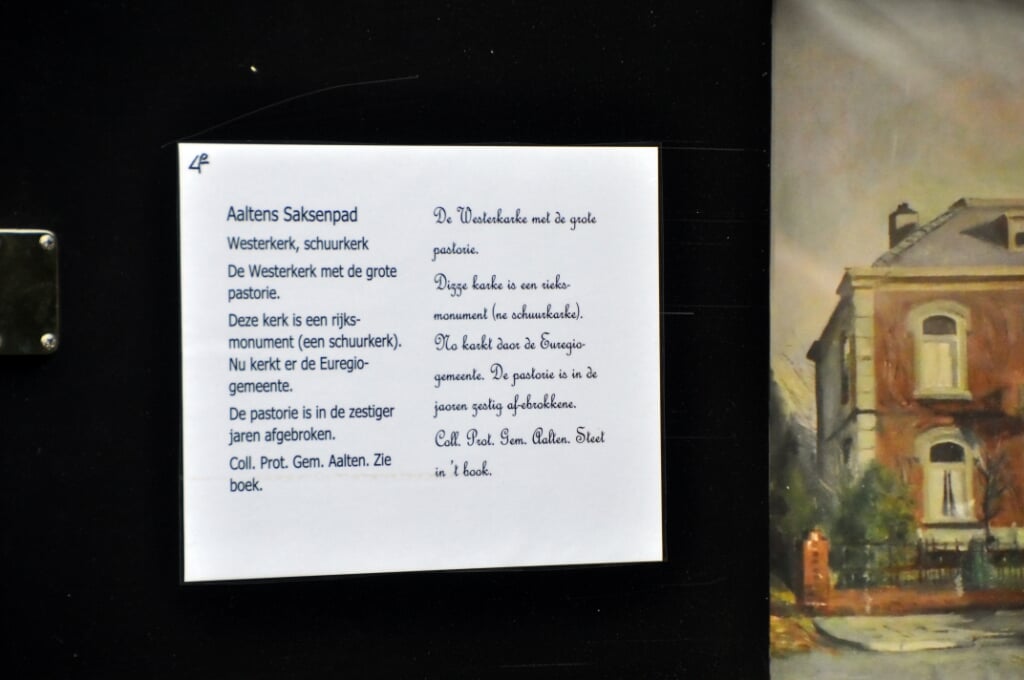 Aaltens Saksenpad
Westerkerk, schuurkerk
De Westerkerk met de grote
pastorie.
Deze kerk is een rijks-
monument (een schuurkerk).
Nu kerkt er de Euregio-
gemeente.
De pastorie is in de zestiger
jaren afgebroken.
Coll. Prot. Gem. Aalten. Zie
boek.
De Westerkarke met de grote
pastorie.
Dizze karke is een rieks-
monument (ne schuurkarke).
No karkt daor de Euregio-
gemeente. De pastorie is in de
jaoren zestig af-ebrokkene.
Coll. Prot. Gem. Aalten. Steet
in 't book.